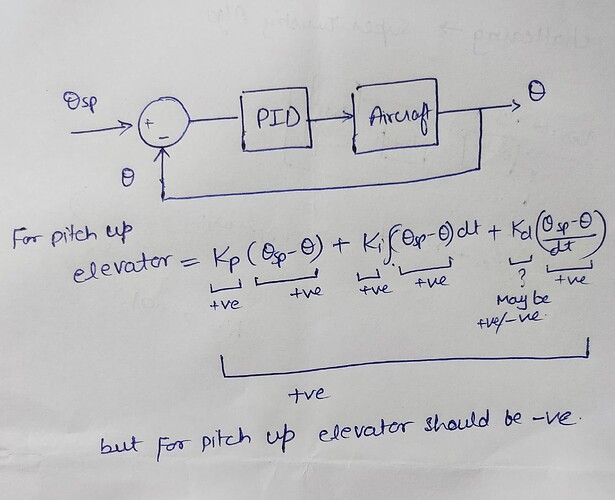 θsp
+
−
PID
Aircraft
θ
θ
For pitch up
elevator = Kp (θsp-θ) + Ki∫(θsp-θ)dt + Kd(θsp-θ/dt)
+ve +ve +ve +ve ? +ve
May be
+ve/-ve.
+ve
but For pitch up elevator should be -ve.